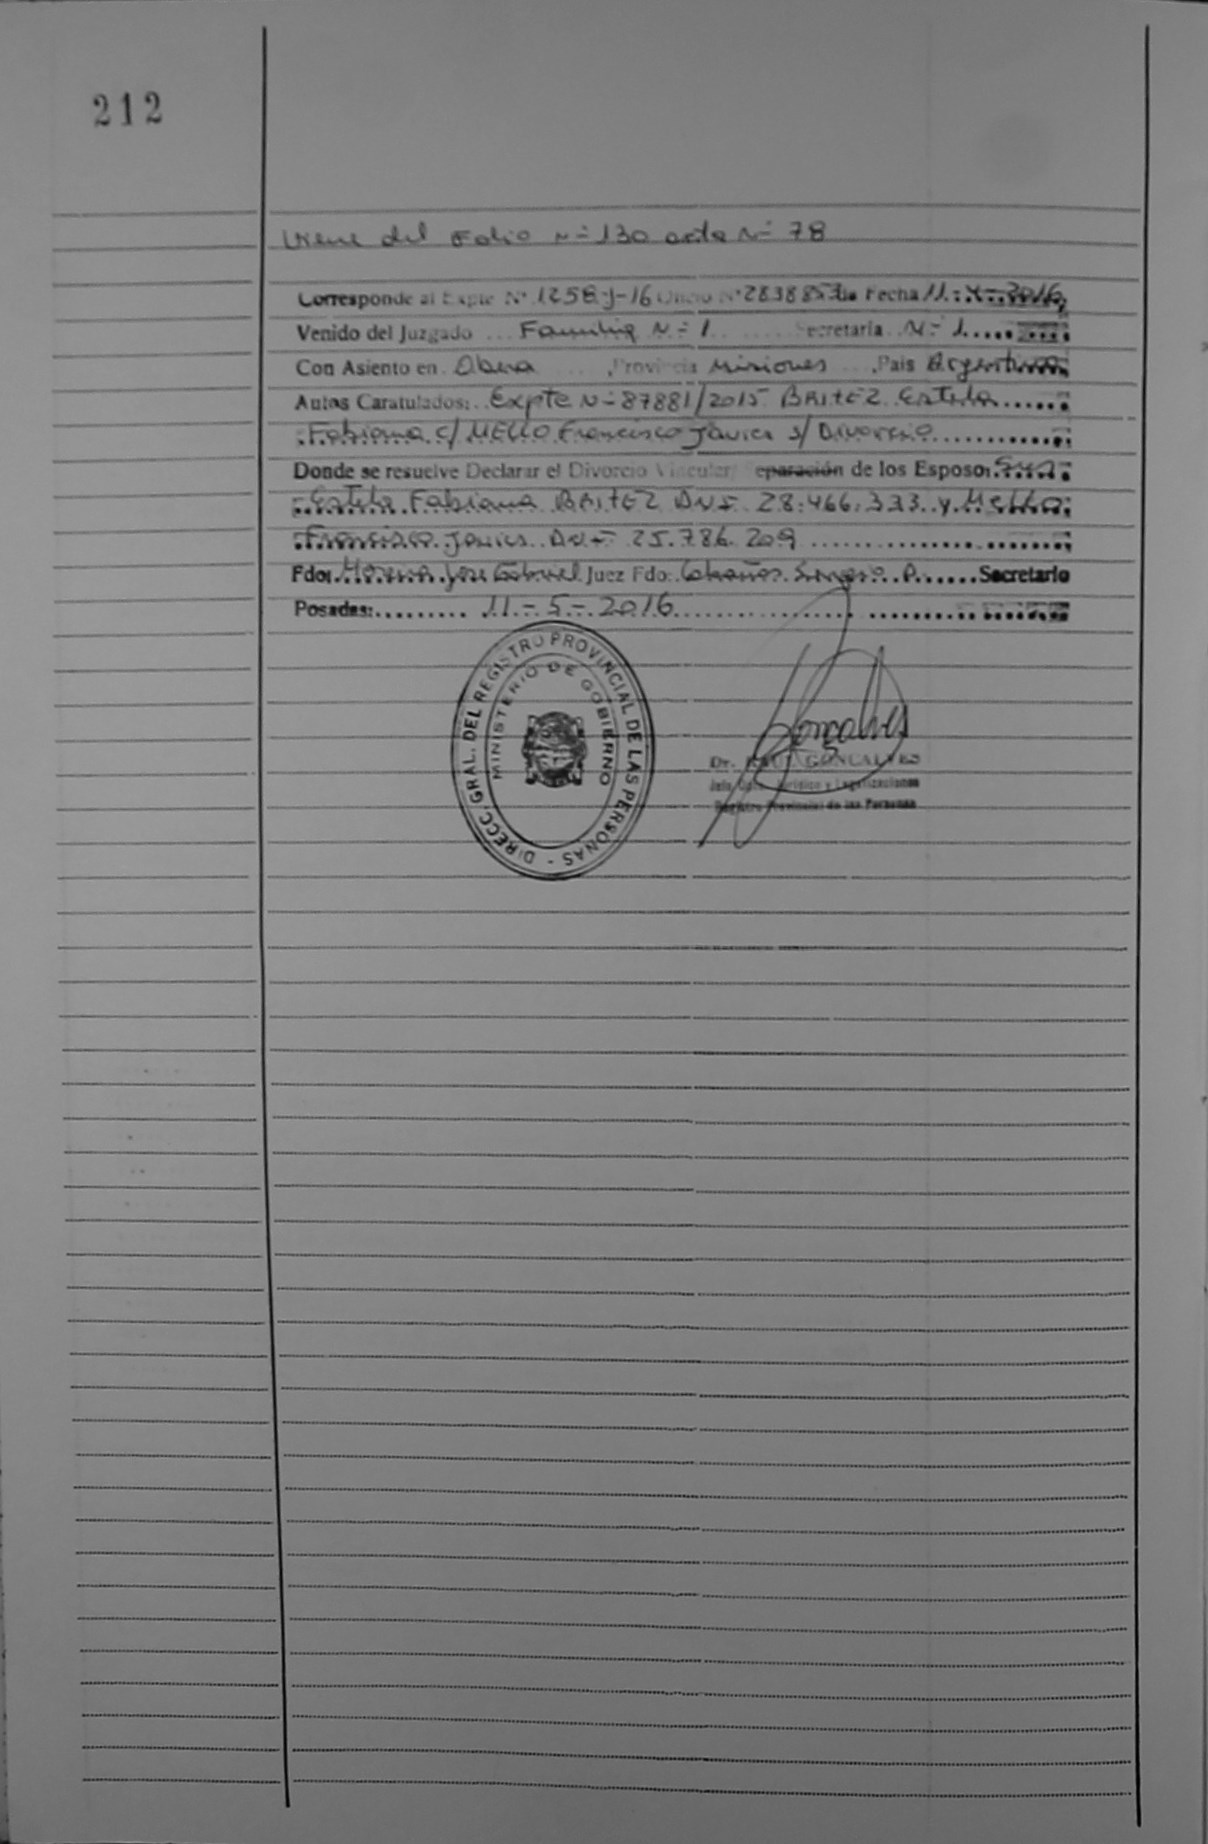 212
Viene del Folio N= 130 acta N= 78
Corresponde al Expte Nº 1258-J-16 Oficio Nº 2838853 de Fecha 11-V-2016
Venido del Juzgado Familia N= 1 Secretaria N= 1
Con Asiento en Obera Provincia Misiones País Argentina
Autos Caratulados: Expte N= 87881/2015 BRITEZ Estela
Fabiana c/ MELLO Francisco Javier s/ Divorcio
Donde se resuelve Declarar el Divorcio Vincular/ Separación de los Esposos
Estela Fabiana BRITEZ DNI 28.466.333 y Mello
Francisco Javier DNI 25.786.209
Fdo: Jose Gabriel Juez Fdo: Sergio Secretario
Posadas: 11-5-2016
DIRECC. GRAL. DEL REGISTRO PROVINCIAL DE LAS PERSONAS -
MINISTERIO DE GOBIERNO
Gonçalves
Dr. GONCALVES
Jurídico y Legalizaciones
Registro Provincial de las Personas